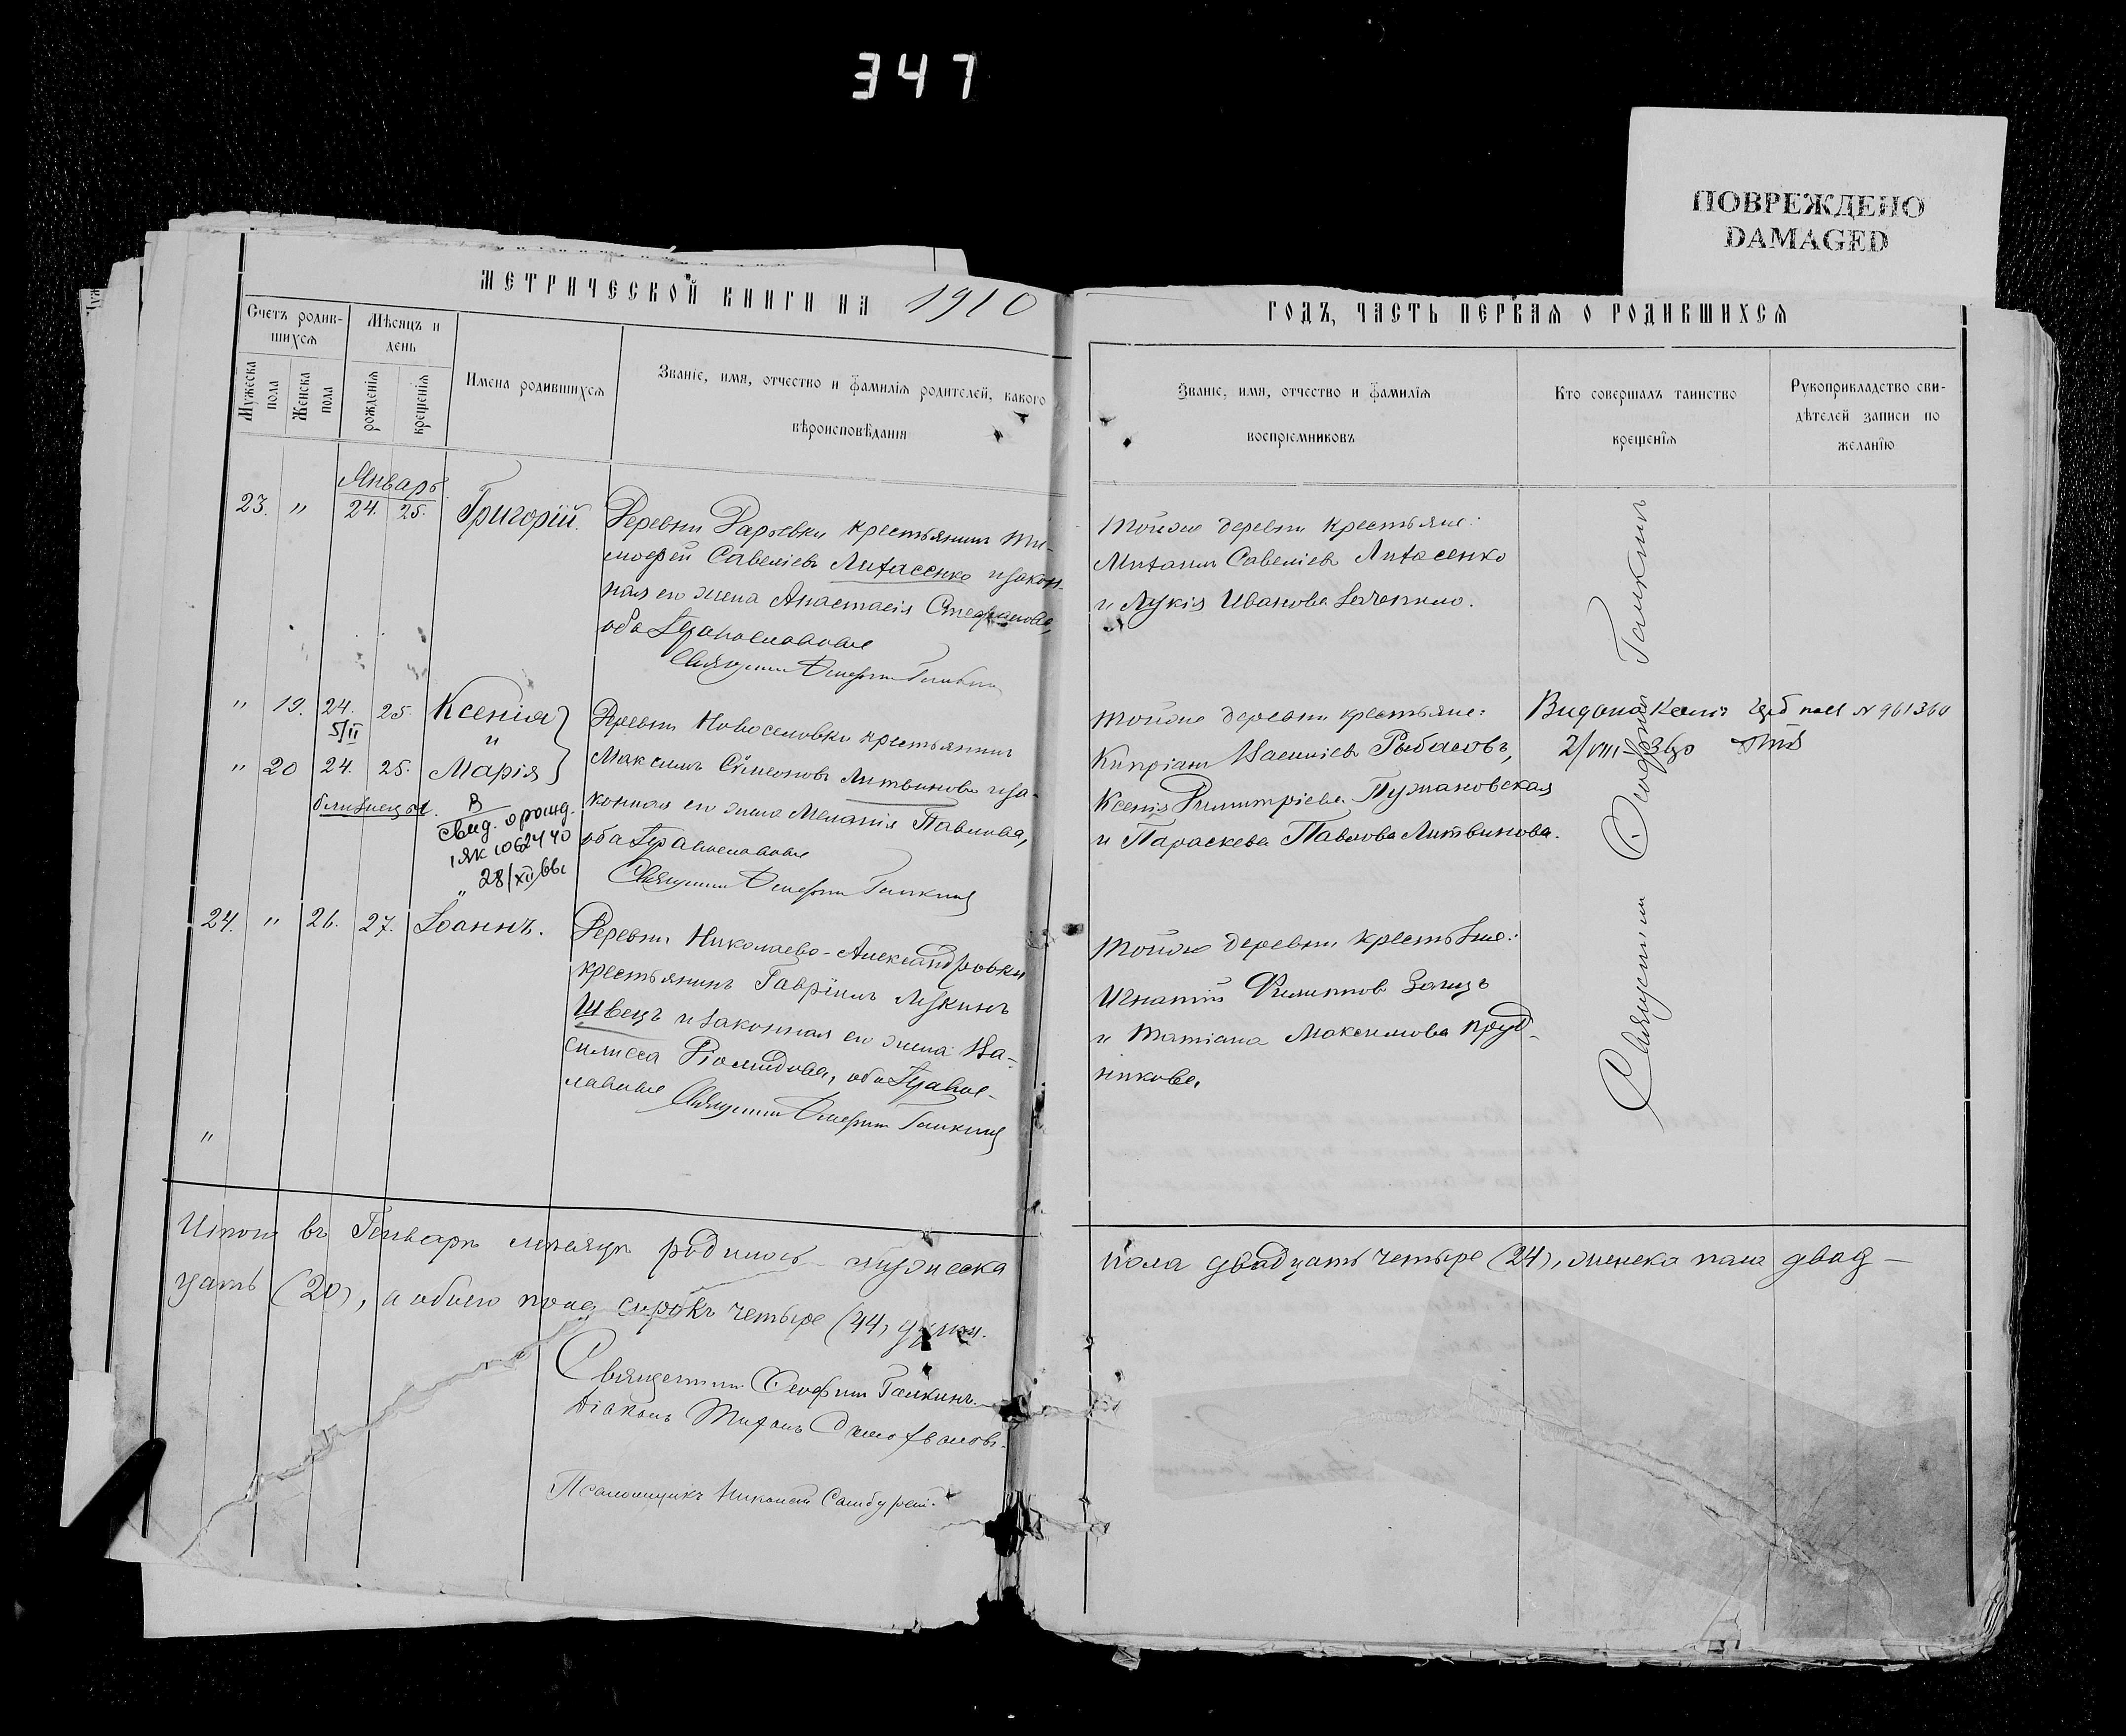 347
ПОВРЕЖДЕНО
DAMAGED
МЕТРИЧЕСКОЙ КНИГИ НА 1910
ГОДЪ, ЧАСТЬ ПЕРВАЯ О РОДИВШИХСЯ
Счетъ родив-
шихся
Мужеска
пола
Женска
пола
Мѣсяцъ и
день
рожденія
крещенія
Имена родившихся
Званіе, имя, отчество и фамилія родителей, какого
вѣроисповѣданія
Званіе, имя, отчество и фамилія
воспріемниковъ
Кто совершалъ таинство
крещенія
Рукоприкладство сви-
дѣтелей записи по
желанію
Январь
23. " 24. 25. Григорій.
Деревни Дарьевки крестьянинъ Ти-
моѳей Савеліевъ Лиѳасенко и закон-
ная его жена Анастасія Стефанова,
оба Православные
Священникъ Ѳеофилъ Галкинъ
Тойже деревни крестьяне:
Савеліевъ Лиѳасенко
и Лукія Иванова
" 19. 24. 25. Ксенія
5/II и
" 20 24. 25. Марія
близнецы.
В
свид. о рожд.
1ЯК 1062440
28/XII
Деревни Новоселовки крестьянинъ
Максимъ Сѵмеоновъ Литвиновъ и за-
конная его жена Меланія Павлова,
оба Православные
Священникъ Ѳеофилъ Галкинъ
Тойже деревни крестьяне:
Кипріанъ Василіевъ Рыбасовъ,
Ксенія Димитріева Тумановская
и Параскева Павлова Литвинова.
Выдана № 961360
2/VIII
24. " 26. 27. Іоаннъ.
Деревни Николаево-Александровки
крестьянинъ Гавріилъ Лукинъ
Швецъ и законная его жена Ва-
силисса Діомидова, оба Право-
славные Священникъ Ѳеофилъ Галкинъ
Тойже деревни крестьяне:
Игнатій Филипповъ Заяцъ
и Татіана Максимова Пруд-
никова.
Священникъ Ѳеофилъ Галкинъ
"
Итого въ Генварѣ мѣсяцѣ родилось мужеска
пола двадцать четыре (24), женска пола двад-
цать (20), а обоего пола сорокъ четыре (44) души.
Священникъ Ѳеофилъ Галкинъ.
Діаконъ
Псаломщикъ Николай